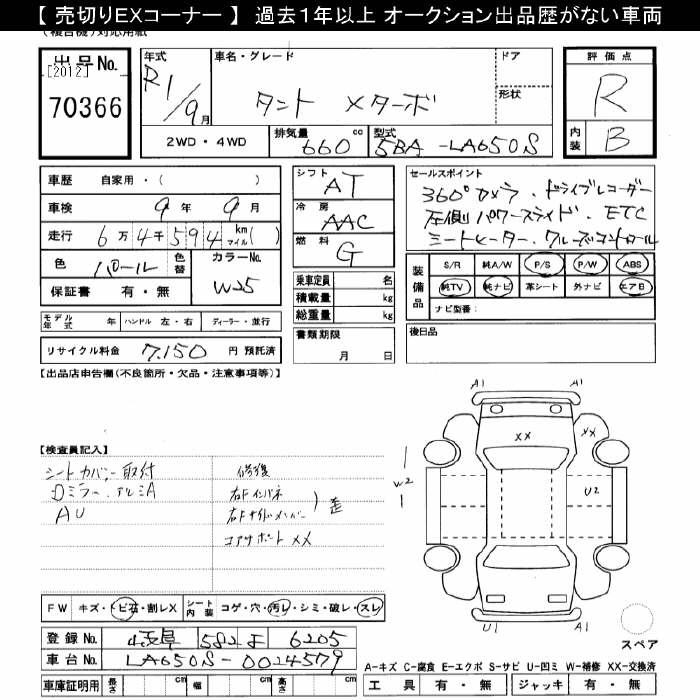 【 売切りEXコーナー 】 過去1年以上 オークション出品歴がない車両
(複合機)対応用紙
出品No. [2012] 70366
年式 R1/9月
車名・グレード タント Xターボ
ドア
形状
評価点 R
内装 B
2WD・4WD 排気量 660 cc 型式 5BA-LA650S
車歴 自家用・( )
車検 9年 9月
走行 6万4千594 km マイル( )
色 パール 色替 カラーNo. W25
保証書 有・無
シフト AT
冷房 AAC
燃料 G
乗車定員 名
積載量 kg
総重量 kg
書類期限 月 日
セールスポイント
360°カメラ．ドライブレコーダー
左側パワースライド．ETC
シートヒーター．クルーズコントロール
装備品 S/R 純A/W P/S P/W ABS
純TV 純ナビ 革シート 外ナビ エアB
ナビ型番:
モデル年式 年 ハンドル 左・右 ディーラー・並行
後日品
リサイクル料金 7,150 円 預託済
【出品店申告欄(不良箇所・欠品・注意事項等)】
A1 A1
XX XX
W2 U2
U1 A1
【検査員記入】
シートカバー取付 修復
Dミラー．アルミA 右Fインパネ
AU 右Fサイドメンバー 歪
コアサポートXX
FW キズ・トビ石・割レX シート内装 コゲ・穴・汚レ・シミ・破レ・スレ
登録No. 岐阜 582 え 6205
車台No. LA650S-0024579
車庫証明用 長さ cm 幅 cm 高さ cm
スペア
A-キズ C-腐食 E-エクボ S-サビ U-凹ミ W-補修 XX-交換済
工具 有・無 ジャッキ 有・無